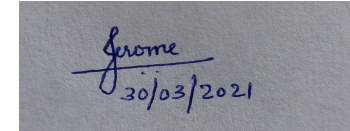 Jerome
30/03/2021